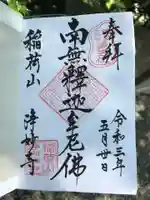 奉拝
令和三年
五月廿日
南無釋迦牟尼佛
稲荷山
浄妙寺